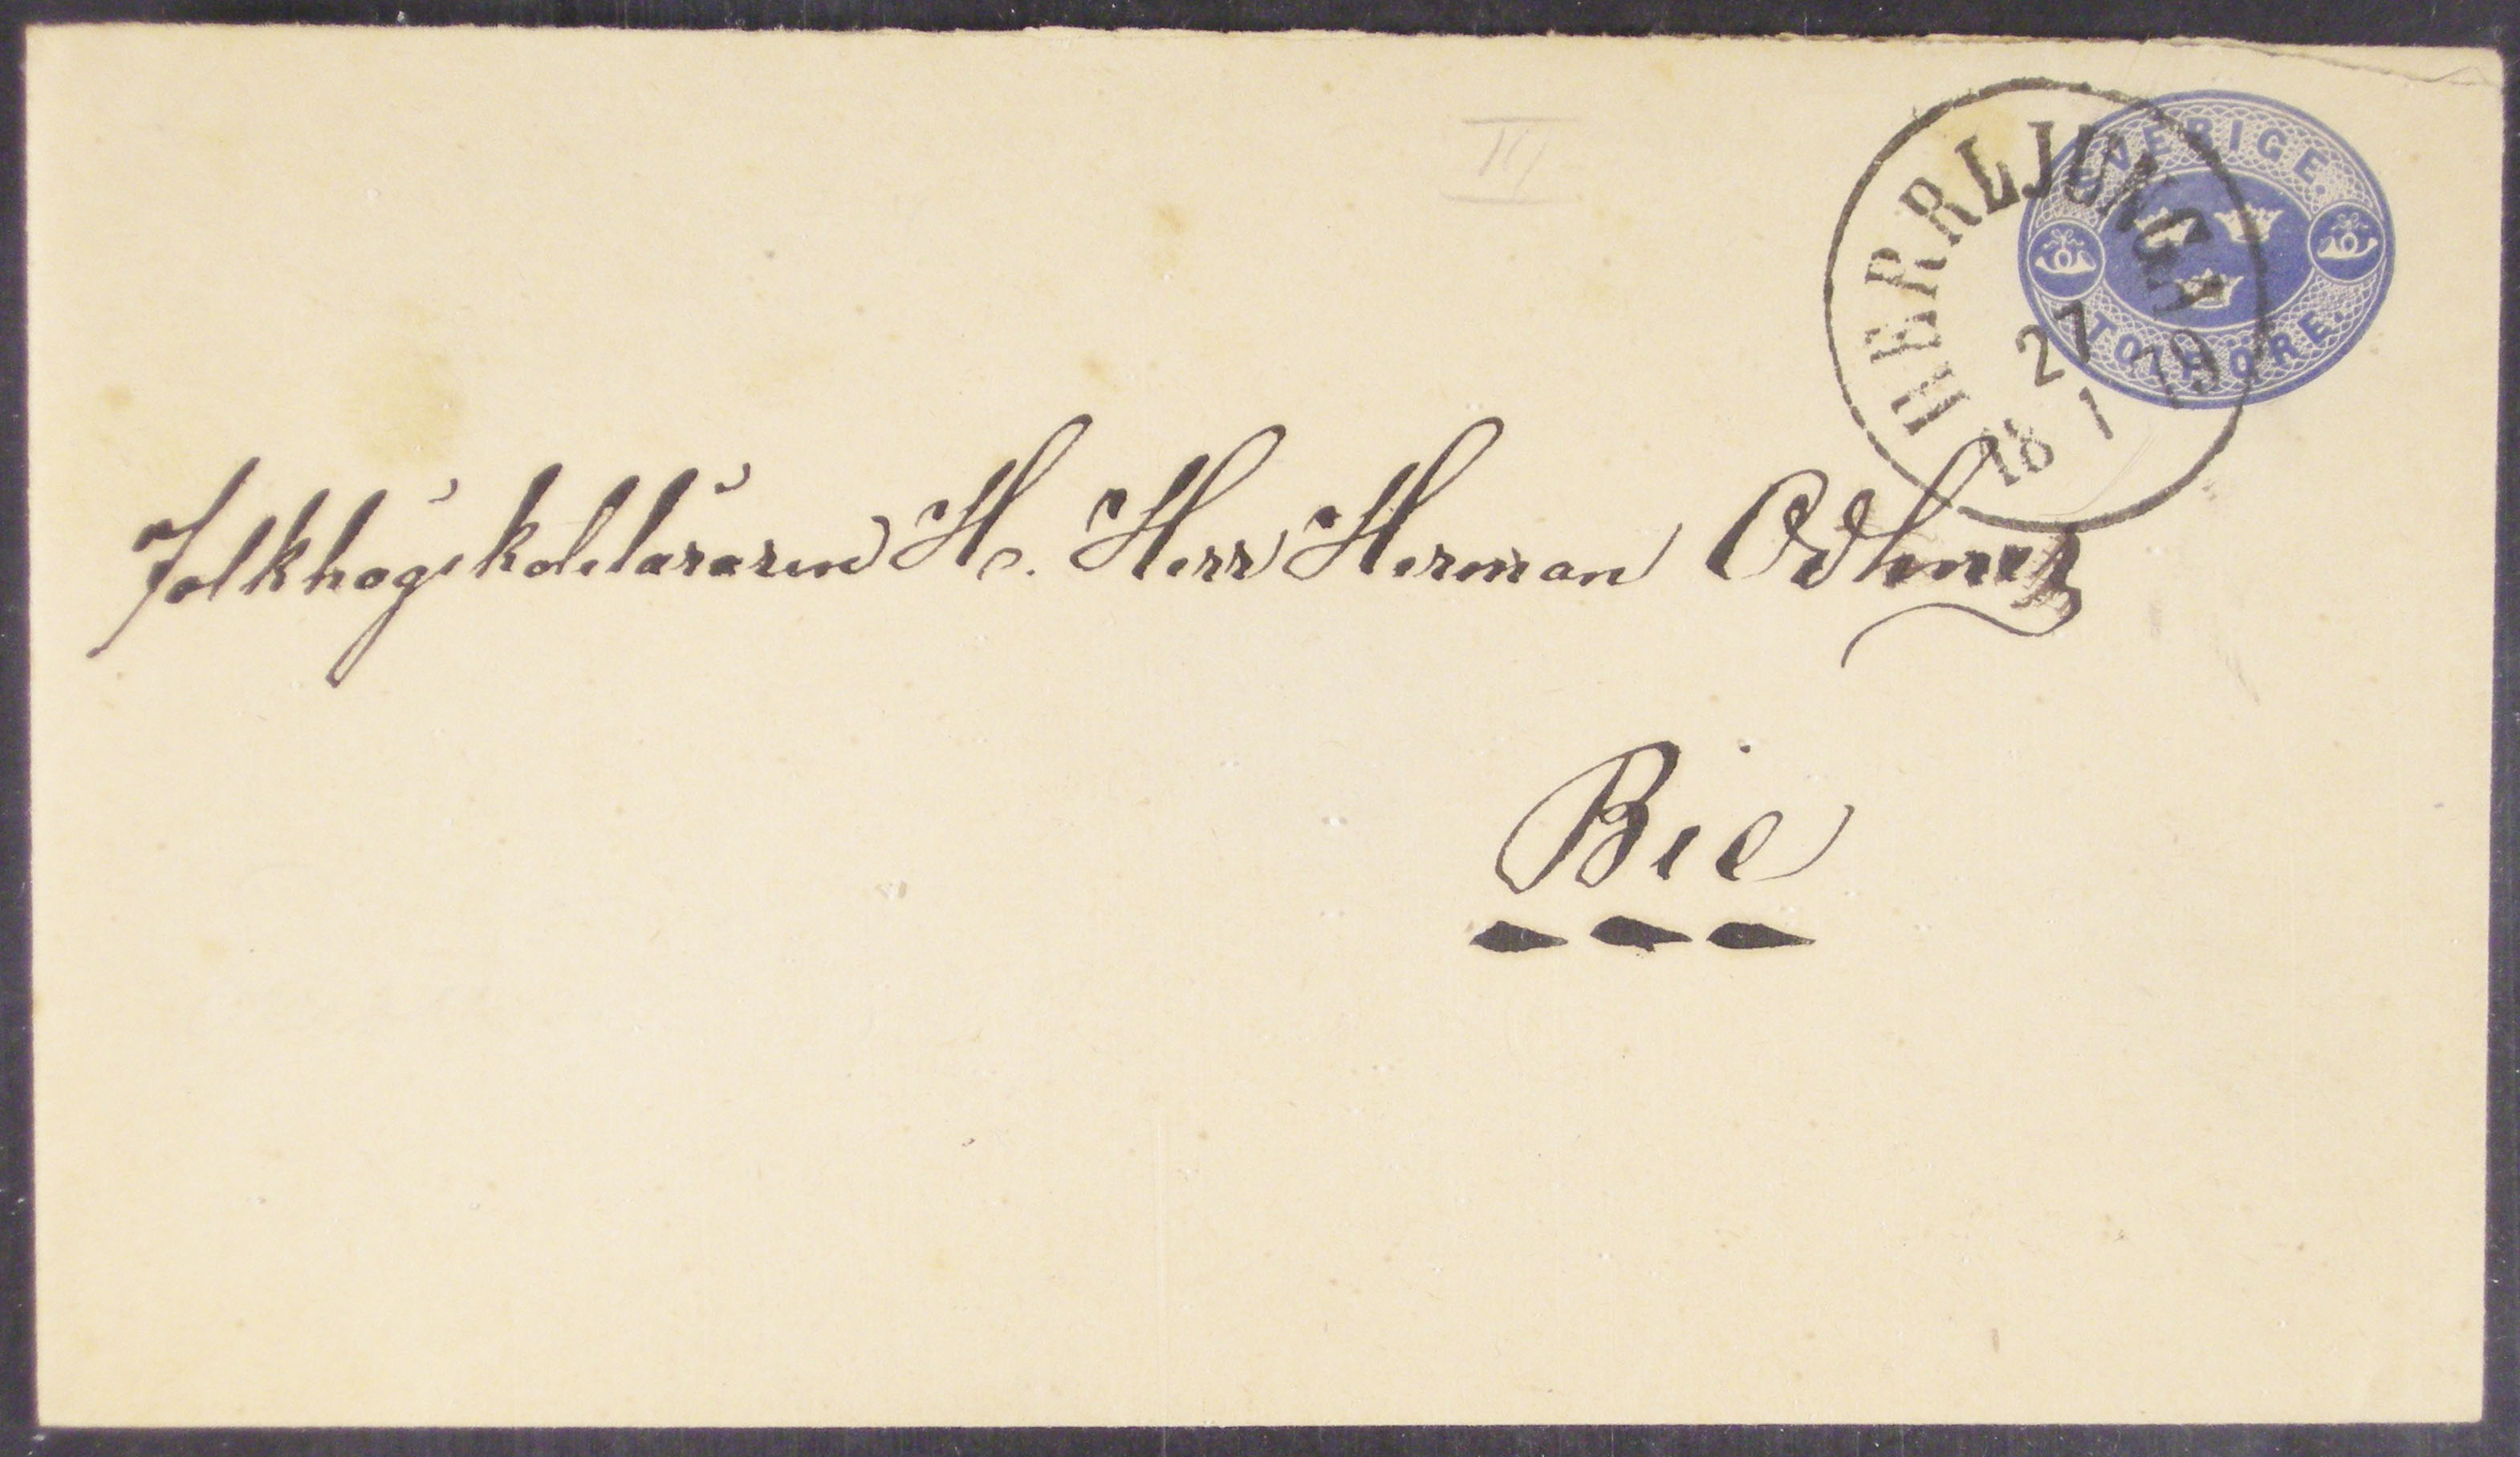 III
SVERIGE.
TOLF ÖRE.
HERRLJUNGA
27
18 1 79
Folkhögskoleläraren H. Herr Herman Odhner
Bie